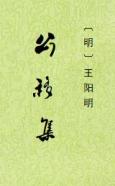 〔明〕王阳明
公移集